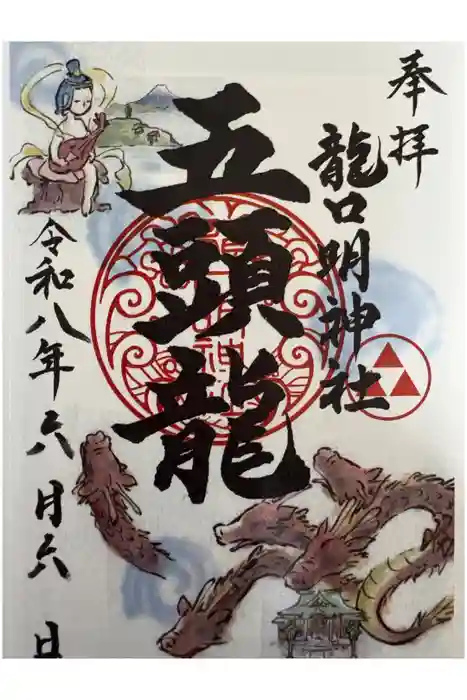 奉拝
龍口明神社
五頭龍
令和八年六月六日